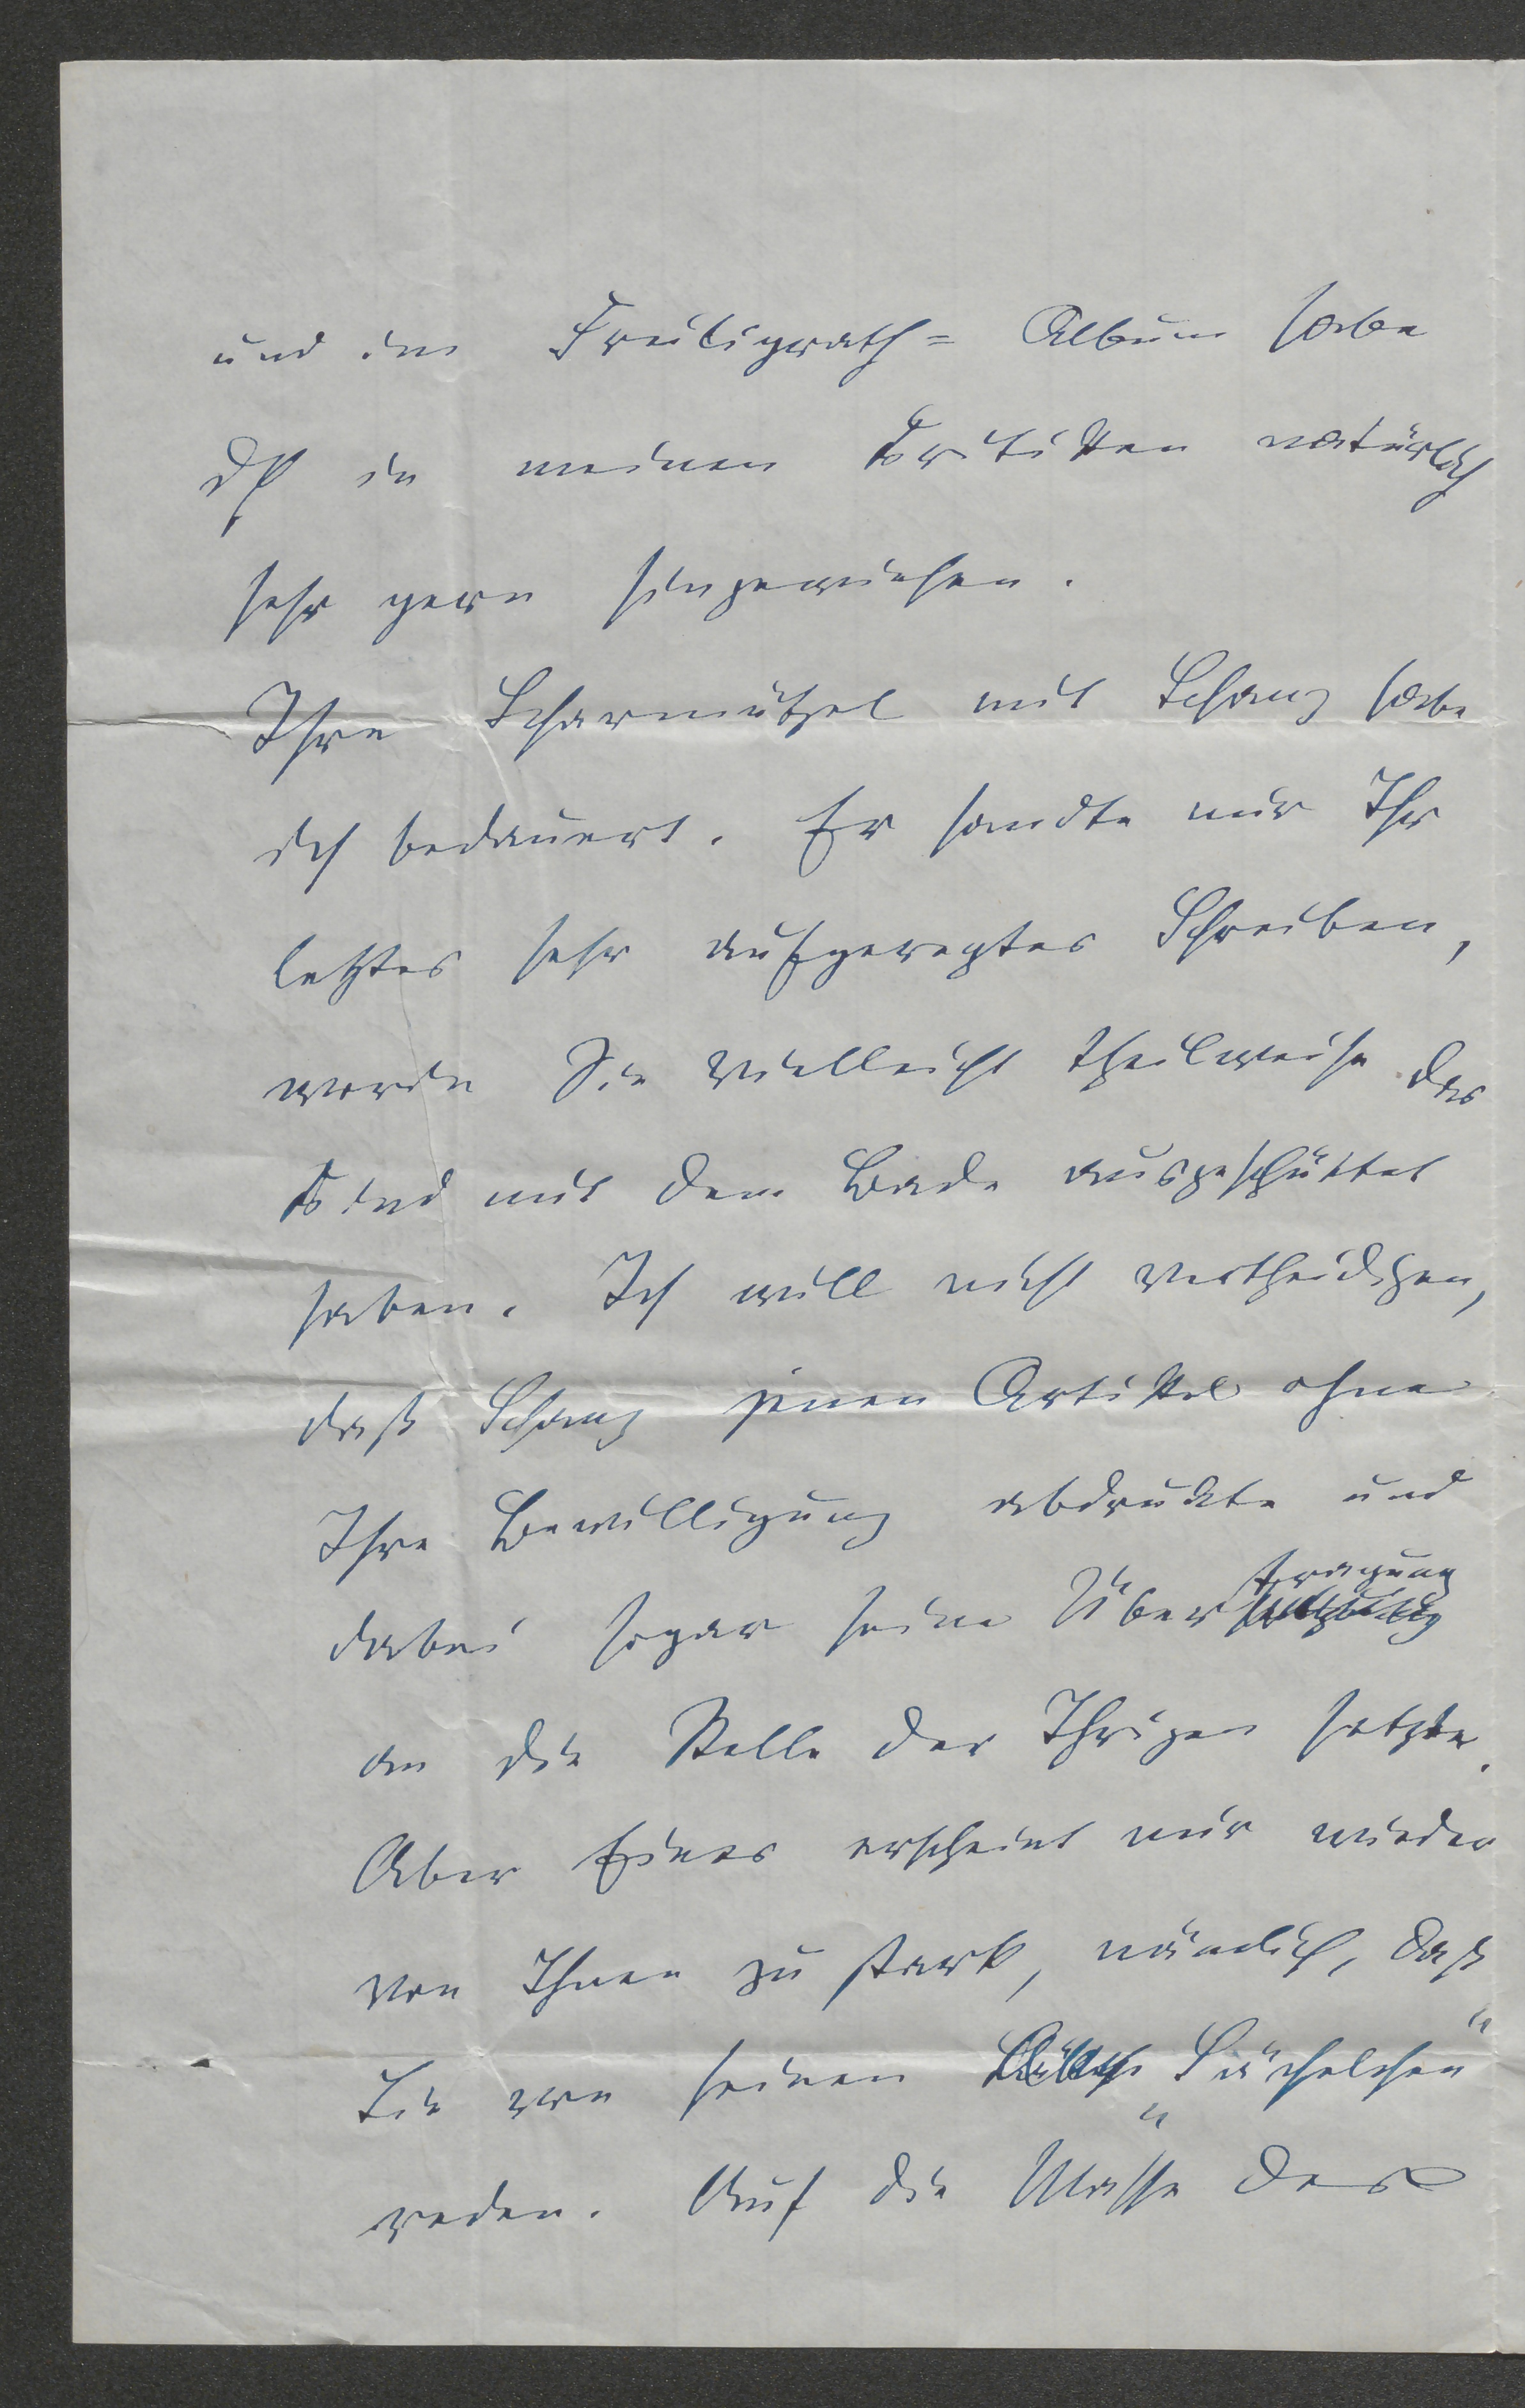 und im Freiligrath-Album habe
ich in meinen Kritiken natürlich
sehr gern hingewiesen.
Ihre Scharmützel mit Schanz habe
ich bedauert. Er sandte mir Ihr
letztes sehr aufgeregtes Schreiben,
worin Sie vielleicht theilweise das
Kind mit dem Bade ausgeschüttet
haben. Ich will nicht vertheidigen,
daß Schanz jenen Artikel ohne
Ihre Bewilligung abdruckte und
dabei sogar seine Übertragung
an die Stelle der Ihrigen setzte.
Aber Eines erscheint mir wieder
von Ihnen zu stark, nämlich, daß
Sie von seinen „Sächelchen“
reden. Auf die Masse des